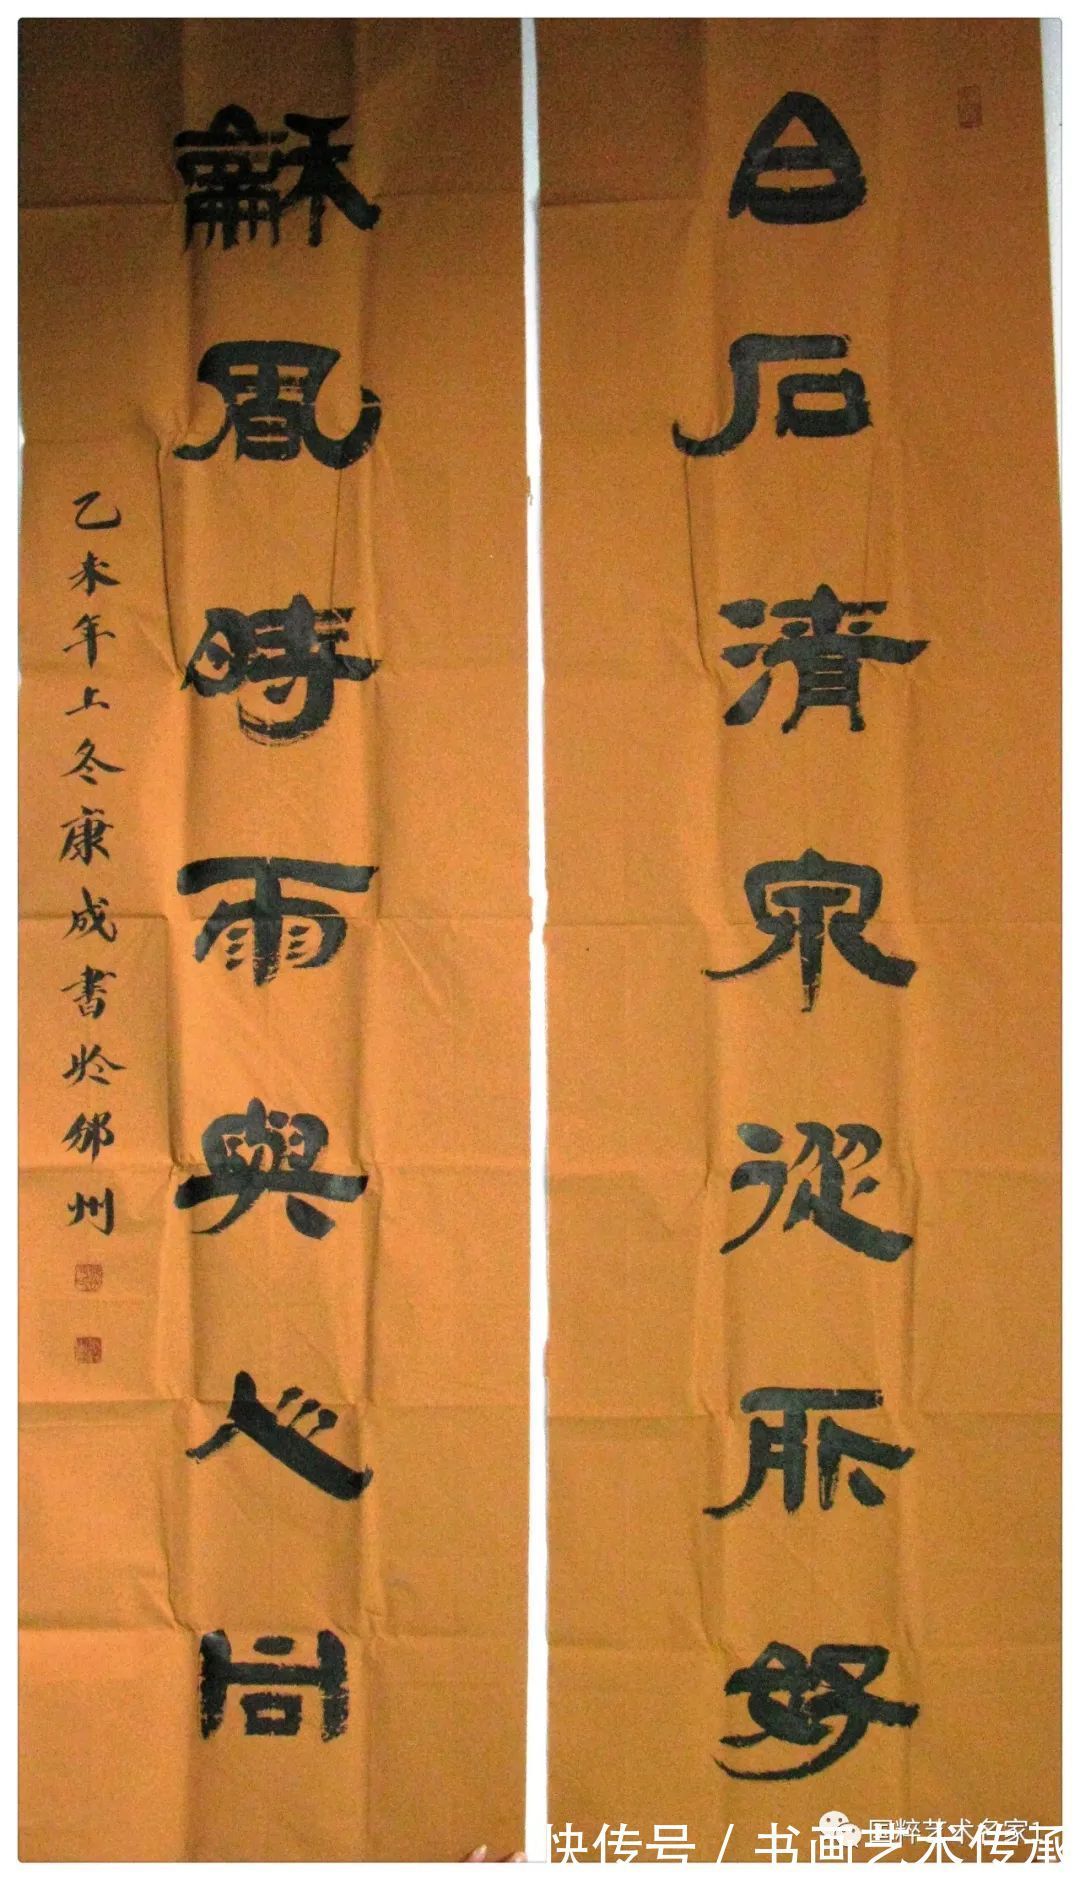 白石清泉從所好
龢風時雨與心同
乙未年上冬康成书於邠州
国粹艺术名家1
快传号 / 书画艺术传承